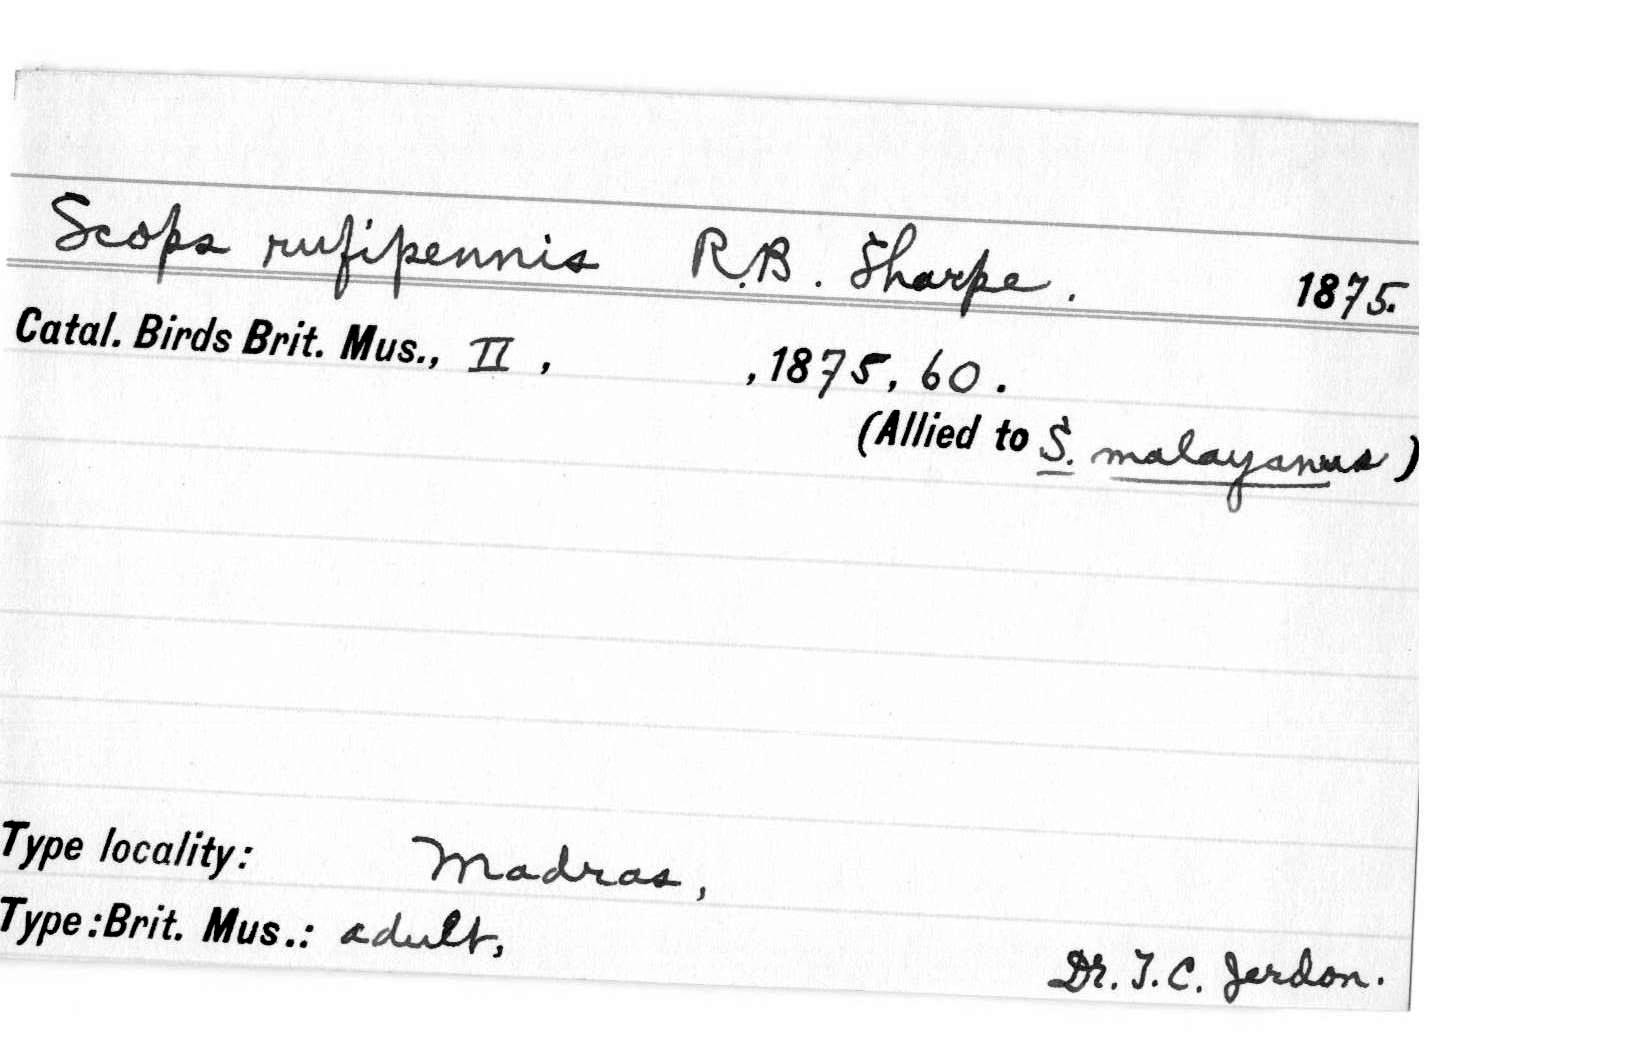 Scops rufipennis R.B. Sharpe. 1875.
Catal. Birds Brit. Mus., II, , 1875, 60.
(Allied to S. malayanus)
Type locality: Madras,
Type: Brit. Mus.: adult,
Dr. T. C. Jerdon.